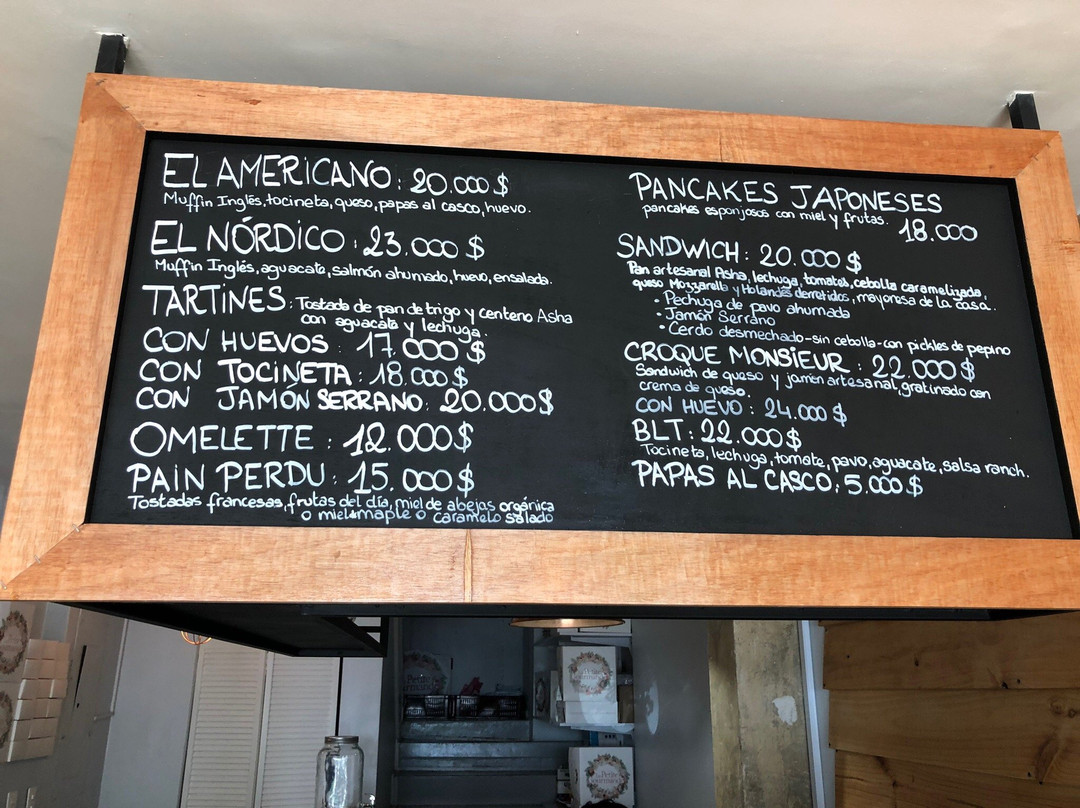 EL AMERICANO: 20.000 $
Muffin Inglés, tocineta, queso, papas al casco, huevo.
EL NÓRDICO: 23.000 $
Muffin Inglés, aguacate, salmón ahumado, huevo, ensalada.
TARTINES: Tostada de pan de trigo y centeno Asha
con aguacate y lechuga.
CON HUEVOS: 17.000 $
CON TOCINETA: 18.000 $
CON JAMÓN SERRANO: 20.000 $
OMELETTE: 12.000 $
PAIN PERDU: 15.000 $
Tostadas francesas, frutas del día, miel de abejas orgánica
o miel maple o caramelo salado
PANCAKES JAPONESES
pancakes esponjosos con miel y frutas. 18.000
SANDWICH: 20.000 $
Pan artesanal Asha, lechuga, tomates, cebolla caramelizada,
queso Mozzarella y Holandés derretidos, mayonesa de la casa.
• Pechuga de pavo ahumada
• Jamón Serrano
• Cerdo desmechado-sin cebolla-con pickles de pepino
CROQUE MONSIEUR: 22.000 $
Sandwich de queso y jamón artesanal, gratinado con
crema de queso.
CON HUEVO: 24.000 $
BLT: 22.000 $
Tocineta, lechuga, tomate, pavo, aguacate, salsa ranch.
PAPAS AL CASCO: 5.000 $
Petite